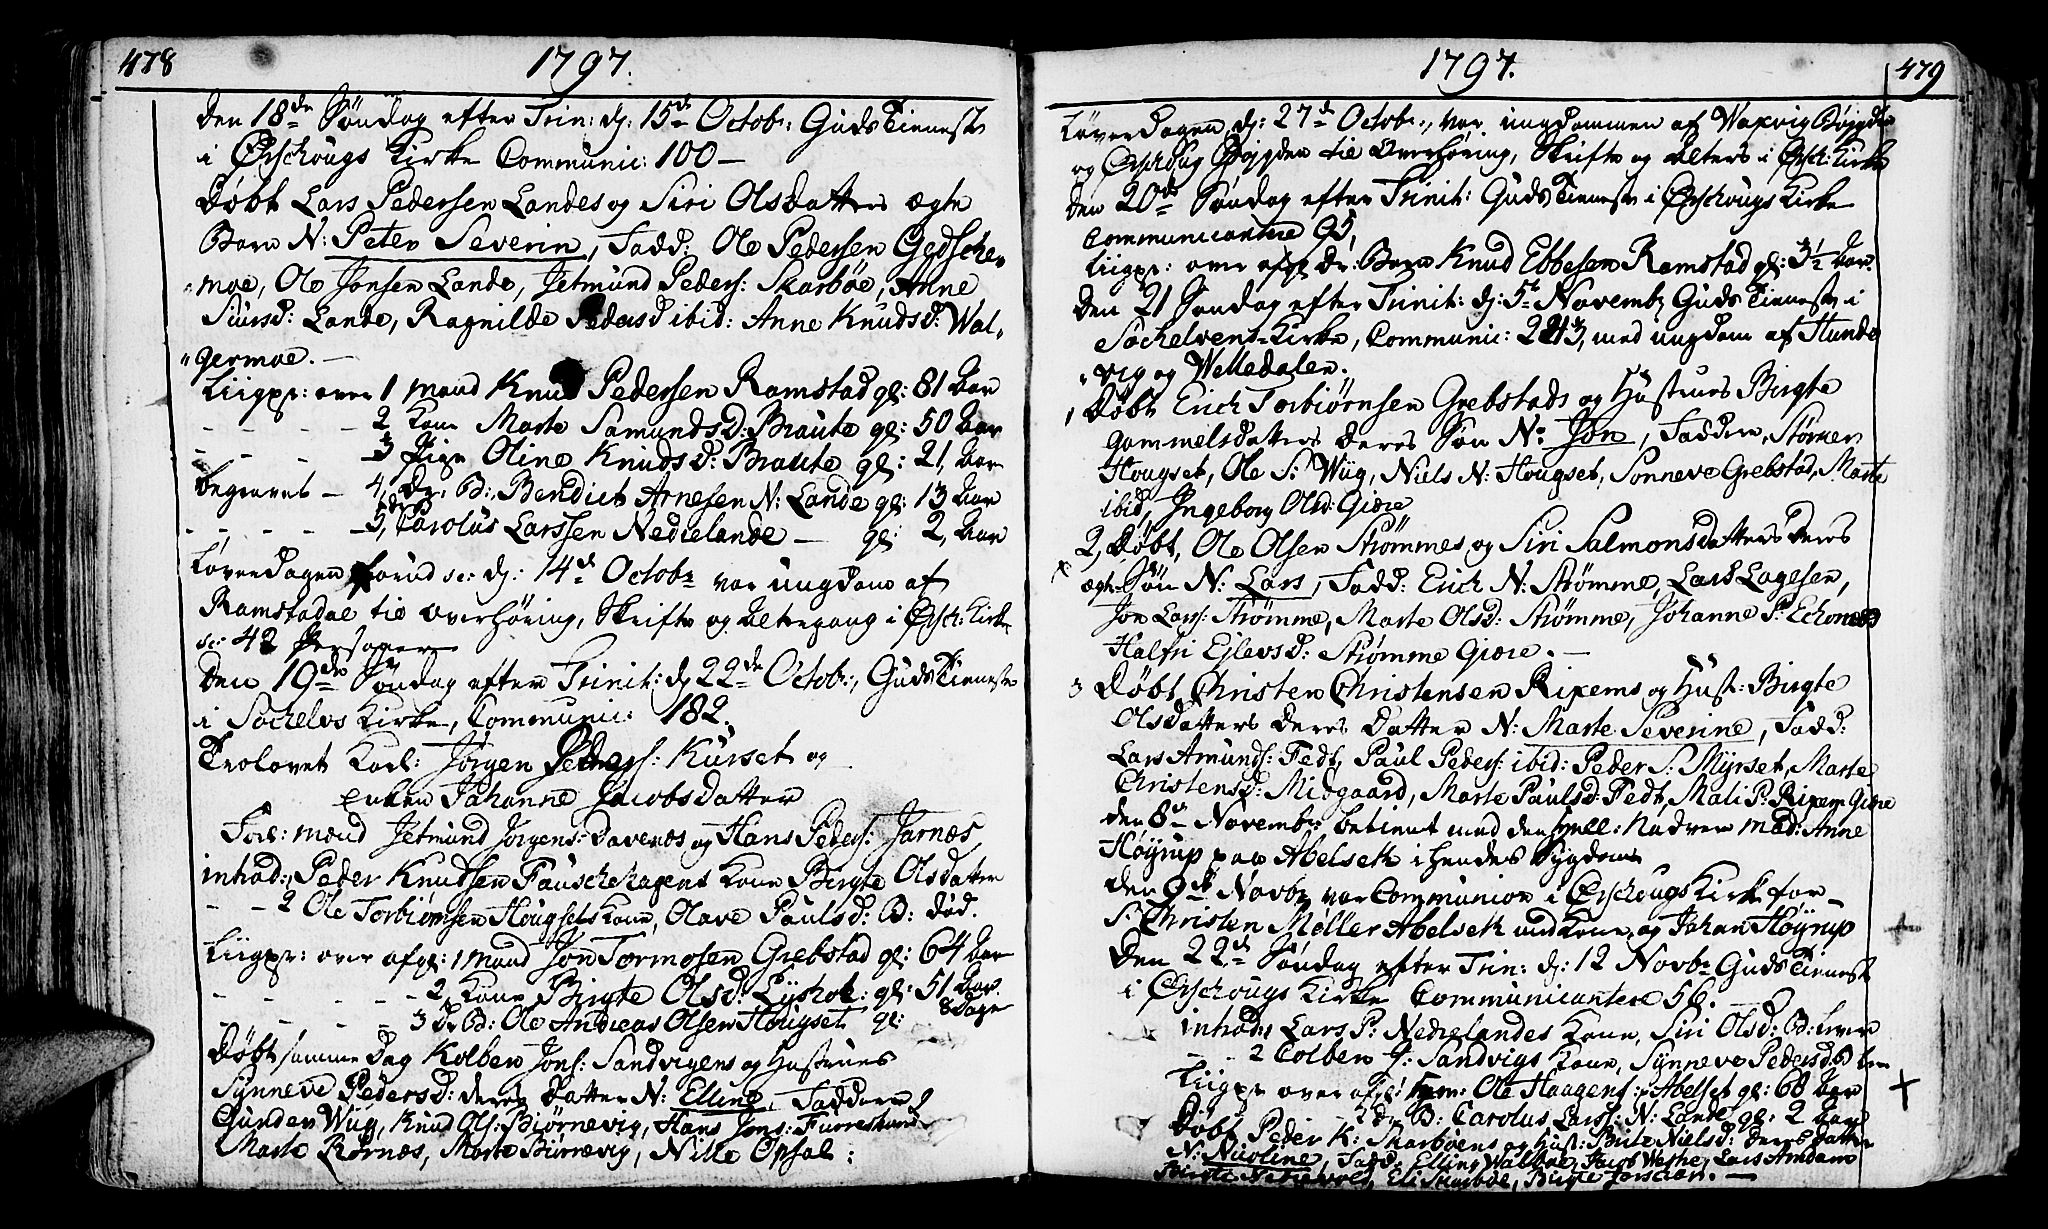 478
1797.
Den 18de Søndag efter Trin: dj: 15de Octobr: GudsTieneste
i Ørschougs Kirke Communic: 100 —
Døbt Lars Pedersen Landes og Siri Olsdatters ægte
Barn N: Peter Severin, Fadd: Ole Pedersen Gedsche-
"moe, Ole Jonsen Lande, Jetmund Peders: Skarbøe, Anne
Siursd: Lande, Ragnilde Pedersd ibid: Anne Knudsd: Wal-
"germoe. —
Liigpr: over 1 Mand Knud Pedersen Ramstad gl: 81 Aar
- - - - 2 Kone Marte Samundsd: Braute gl: 50 Aar
- - - - 3 Pige Oline Knudsd: Braute gl: 21, Aar
Begravet — 4, Dr. B: Bendict Arnesen N: Lande gl: 13 Aar
- - - - 5, Carolus Larssen Nedrelande — gl: 2, Aar
Løverdagen forud sc: dj: 14de Octobr var ungdom af
Ramstadal til Overhøring, Skrifte og Altergang i Ørsch: Kirke
sc: 42 Personer
Den 19de Søndag efter Trinit: dj 22de Octobr:, GudsTieneste
i Søchelvs Kirke, Communic: 182.
Trolovet Karl: Jørgen Peders: Kurset og
Enken Johanne Jacobsdatter
Forl: mænd Jetmund Jørgens: Davenes og Hans Peders: Jarnæs
inthrod:, Peder Knudsen Fauschehagens Kone Birgte Olsdatter
- - 2 Ole Torbiørnsen Hougsets Kone, Olave Paulsd: B: død.
Liigpr: over afgl: 1 Mand Jon Tormosen Grebstad gl: 64 Aar
- - - - 2, Kone Birgte Olsd: Lyshol: gl: 51 Aar.
- - - - 3 Dr Bd: Ole Andreas Olsen Hougset gl: 8 Dage
Døbt samme Dag Kolben Jons: Sandvigens og Hustrues
Synneve Pedersd: deres Datter N: Elline, Faddere
Gunder Wiig, Knud Ols: Biørnevig, Hans Jons: Furrestrand
Marte Rørnæs, Marte Biørnevig, Nille Opsal:
1797.
479
Løverdagen dj: 27de Octobr:, var ungdommen af Waxvig Bøygden
og Ørschoug Bøygden til Overhøring, Skrifte og Alters i Ørsch: Kirke
Den 20de Søndag efter Trinit: GudsTieneste i Ørschougs Kirke
Communicantere 95,
Liigpr: over afgl Dr: Barn Knud Ebbesen Ramstad gl: 3½ Aar.
Den 21 Søndag efter Trinit: dj: 5te Novembr GudsTieneste i
Søchelvens Kirke, Communic: 243, med ungdom af Stunde
"vig og Welledalen.
1, Døbt Erich Torbiørnsen Grebstads og Hustrues Birgte
Gammelsdatters deres Søn N: Jon, Faddere, Størner
Hougset, Ole S: Wiig, Niels N: Hougset, Sonneve Grebstad, Marte
ibid, Ingeborg Olsd: Giære
2, Døbt, Ole Olsen Strømmes og Siri Salmonsdatters deres
ægte Søn N: Lars, Fadd: Erich N: Strømme, Lars Lagesen,
Jon Lars: Strømme, Marte Olsd: Strømme, Johanne P: Echornes
Halfri Ejlevsd: Strømme Giære. —
3 Døbt, Christen Christensen Rixems og Hust: Birgte
Olsdatters deres Datter N: Marte Severine, Fadd:
Lars Amunds: Fedt, Paul Peders: ibid: Peder S: Myrset, Marte
Christensd: Midgaard, Marte Paulsd: Fedt, Mali P: Rixem Giære
den 8de Novembr, betient med den hyll: Nadvere Mad: Anne
Høyrup paa Abelseth i hendes Sygdom
den 9de Novbr var Communion i Ørschougs Kirke for
Sr Christen Møller Abelseth med Kone og Johan Høyrup
Den 22de Søndag efter Trin: dj: 12 Novbr GudsTieneste
i Ørschougs Kirke Communicantere 56. —
inthod: Lars P: Nedrelandes Kone, Siri Olsd: Bd: lever
- - 2 Colben J: Sandvigs Kone, Synneve Pedersd: Bd lev
Liigpr over afgl: Ole Haagens: Abelset gl: 68 Aar
2 dr: B: Carolus Larss: N: Lande gl: 2 Aar
Døbt Peder K: Skarbøens og Hust: Brite Nielsd: deres Datter
N: Nicoline, Fadd: Elling Walbøe, Jacob Westre, Lars Amdam
Birgte Nedrevold, Eli Skarbøe, Birgte